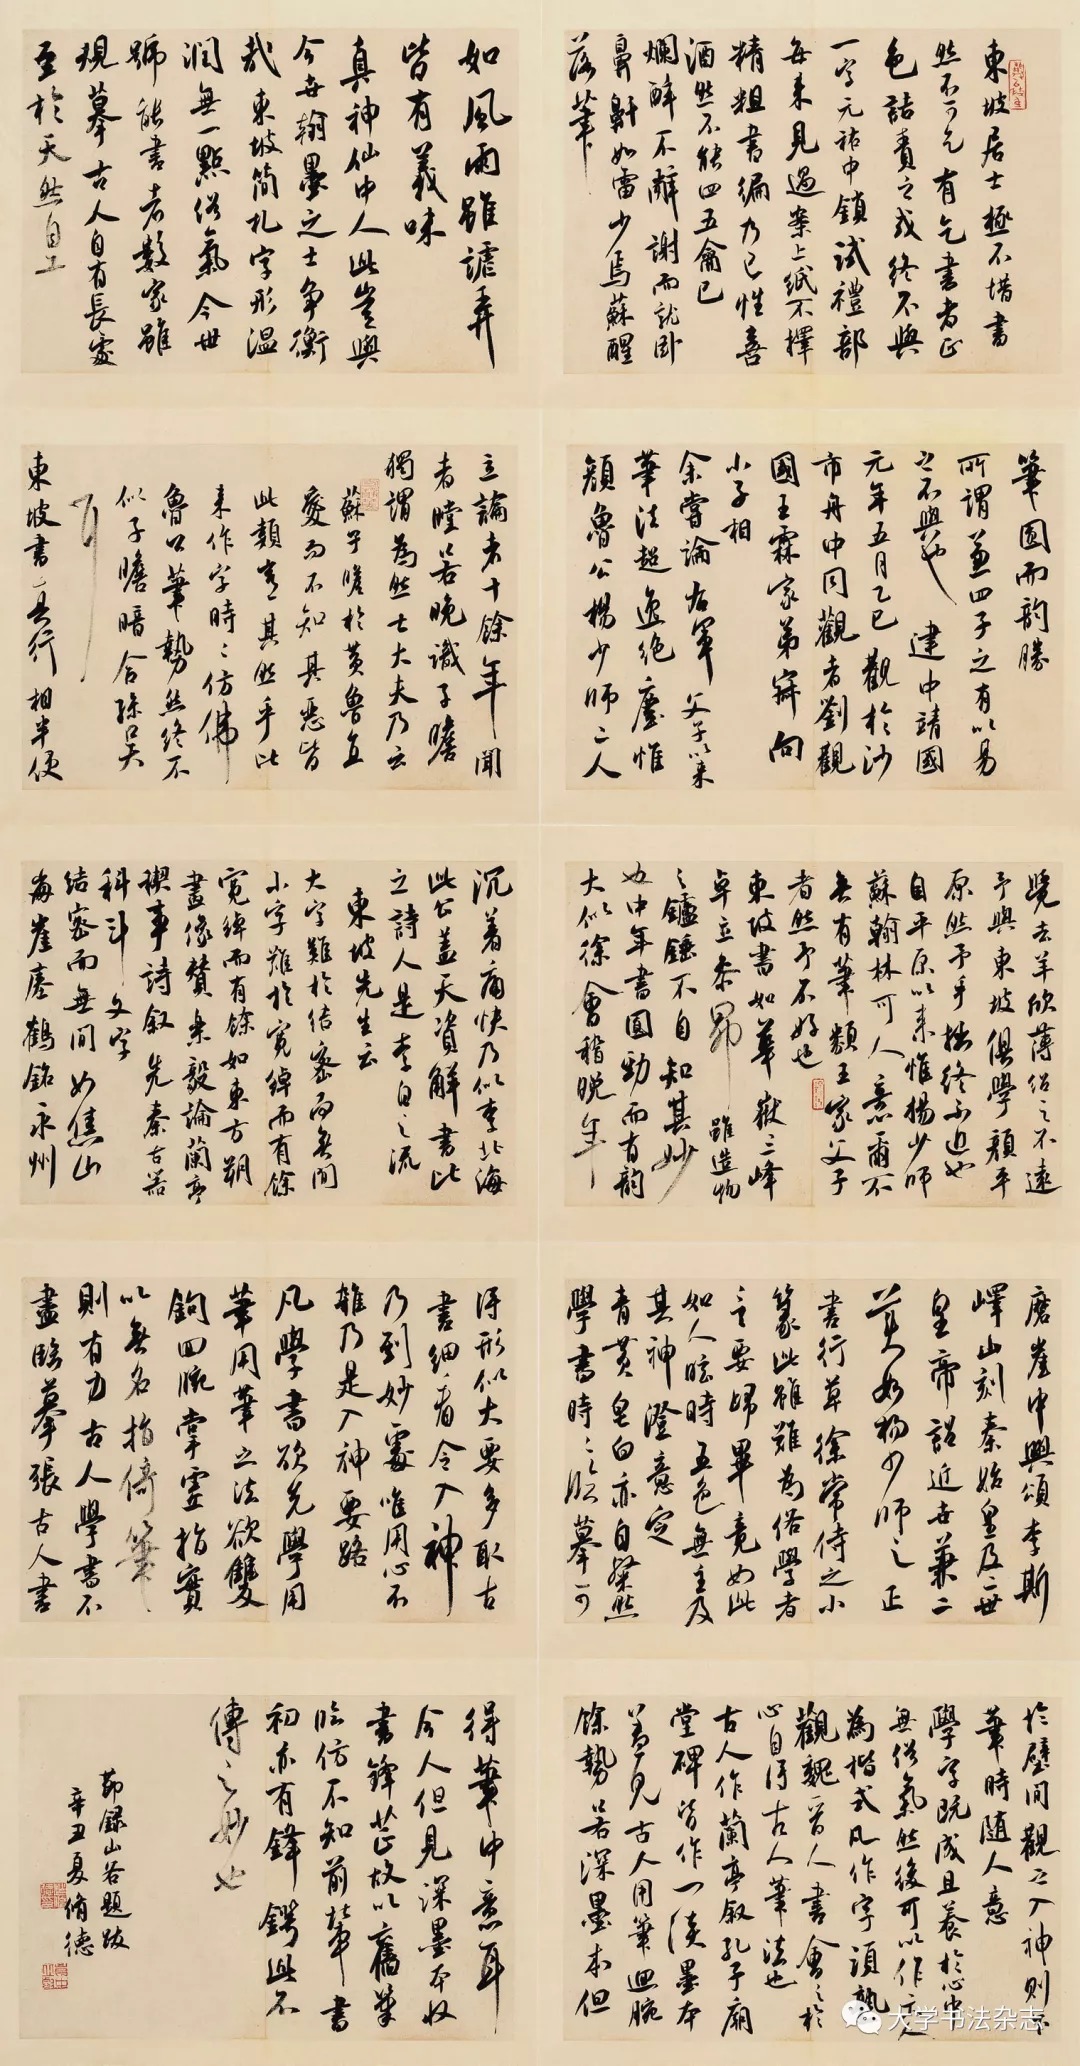 東坡居士極不惜書
然不可乞有乞書者正
色詰責之或終不與
一字元祐中鎖試禮部
每來見過案上紙不擇
精粗書徧乃已性喜
酒然不能四五龠已
爛醉不辭謝而就臥
鼻鼾如雷少焉蘇醒
落筆
如風雨雖謔弄
皆有義味
真神仙中人此豈與
今世翰墨之士爭衡
哉東坡簡札字形溫
潤無一點俗氣今世
號能書者數家雖
規摹古人自有長處
至於天然自工
筆圓而韵勝
所謂兼四子之有以易
之不與也建中靖國
元年五月乙巳觀於沙
市舟中同觀者劉觀
國王霖家弟寐向
小子相
余嘗論右軍父子以來
筆法超逸絕塵惟
顏魯公楊少師二人
立論者十餘年聞
者瞠若晚識子瞻
獨謂為然士大夫乃云
蘇子瞻於黃魯直
愛而不知其惡皆
此類豈其然乎比
來作字時時仿佛
魯公筆勢然終不
似子瞻暗合孫吳
耳
東坡書真行相半便
覺去羊欣薄紹之不遠
予與東坡俱學顏平
原然予手拙終不近也
自平原以來惟楊少師
蘇翰林可人意爾不
無有筆類王家父子
者然予不好也
東坡書如華嶽三峰
卓立參昴雖造物
之鑪錘不自知其妙
也中年書圓勁而有韵
大似徐會稽晚年
沉著痛快乃似李北海
此公蓋天資解書比
之詩人是李白之流
東坡先生云
大字難於結密而無間
小字難於寬綽而有餘
寬綽而有餘如東方朔
畫像贊樂毅論蘭亭
禊事詩敘先秦古器
科斗文字
結密而無間如焦山
崩崖瘞鶴銘永州
磨崖中興頌李斯
嶧山刻秦始皇及二世
皇帝詔近世兼二
美如楊少師之正
書行草徐常侍之小
篆此雖難為俗學者
言要歸畢竟如此
如人眩時五色無主及
其神澄意定
青黃皂白亦自粲然
學書時時臨摹可
得形似大要多取古
書細看令入神
乃到妙處唯用心不
雜乃是入神要路
凡學書欲先學用
筆用筆之法欲雙
鉤回腕掌虛指實
以無名指倚筆
則有力古人學書不
盡臨摹張古人書
於壁間觀之入神則下
筆時隨人意
學字既成且養於心中
無俗氣然後可以作示人
為楷式凡作字須熟
觀魏晉人書會之於
心自得古人筆法也
古人作蘭亭敘孔子廟
堂碑皆作一淡墨本
蓋見古人用筆迴腕
餘勢若深墨本但
得筆中意耳
今人但見深墨本收
書鋒芒故以舊筆
臨仿不知前輩書
初亦有鋒鍔此不
傳之妙也
節錄山谷題跋
辛丑夏脩德
大学书法杂志